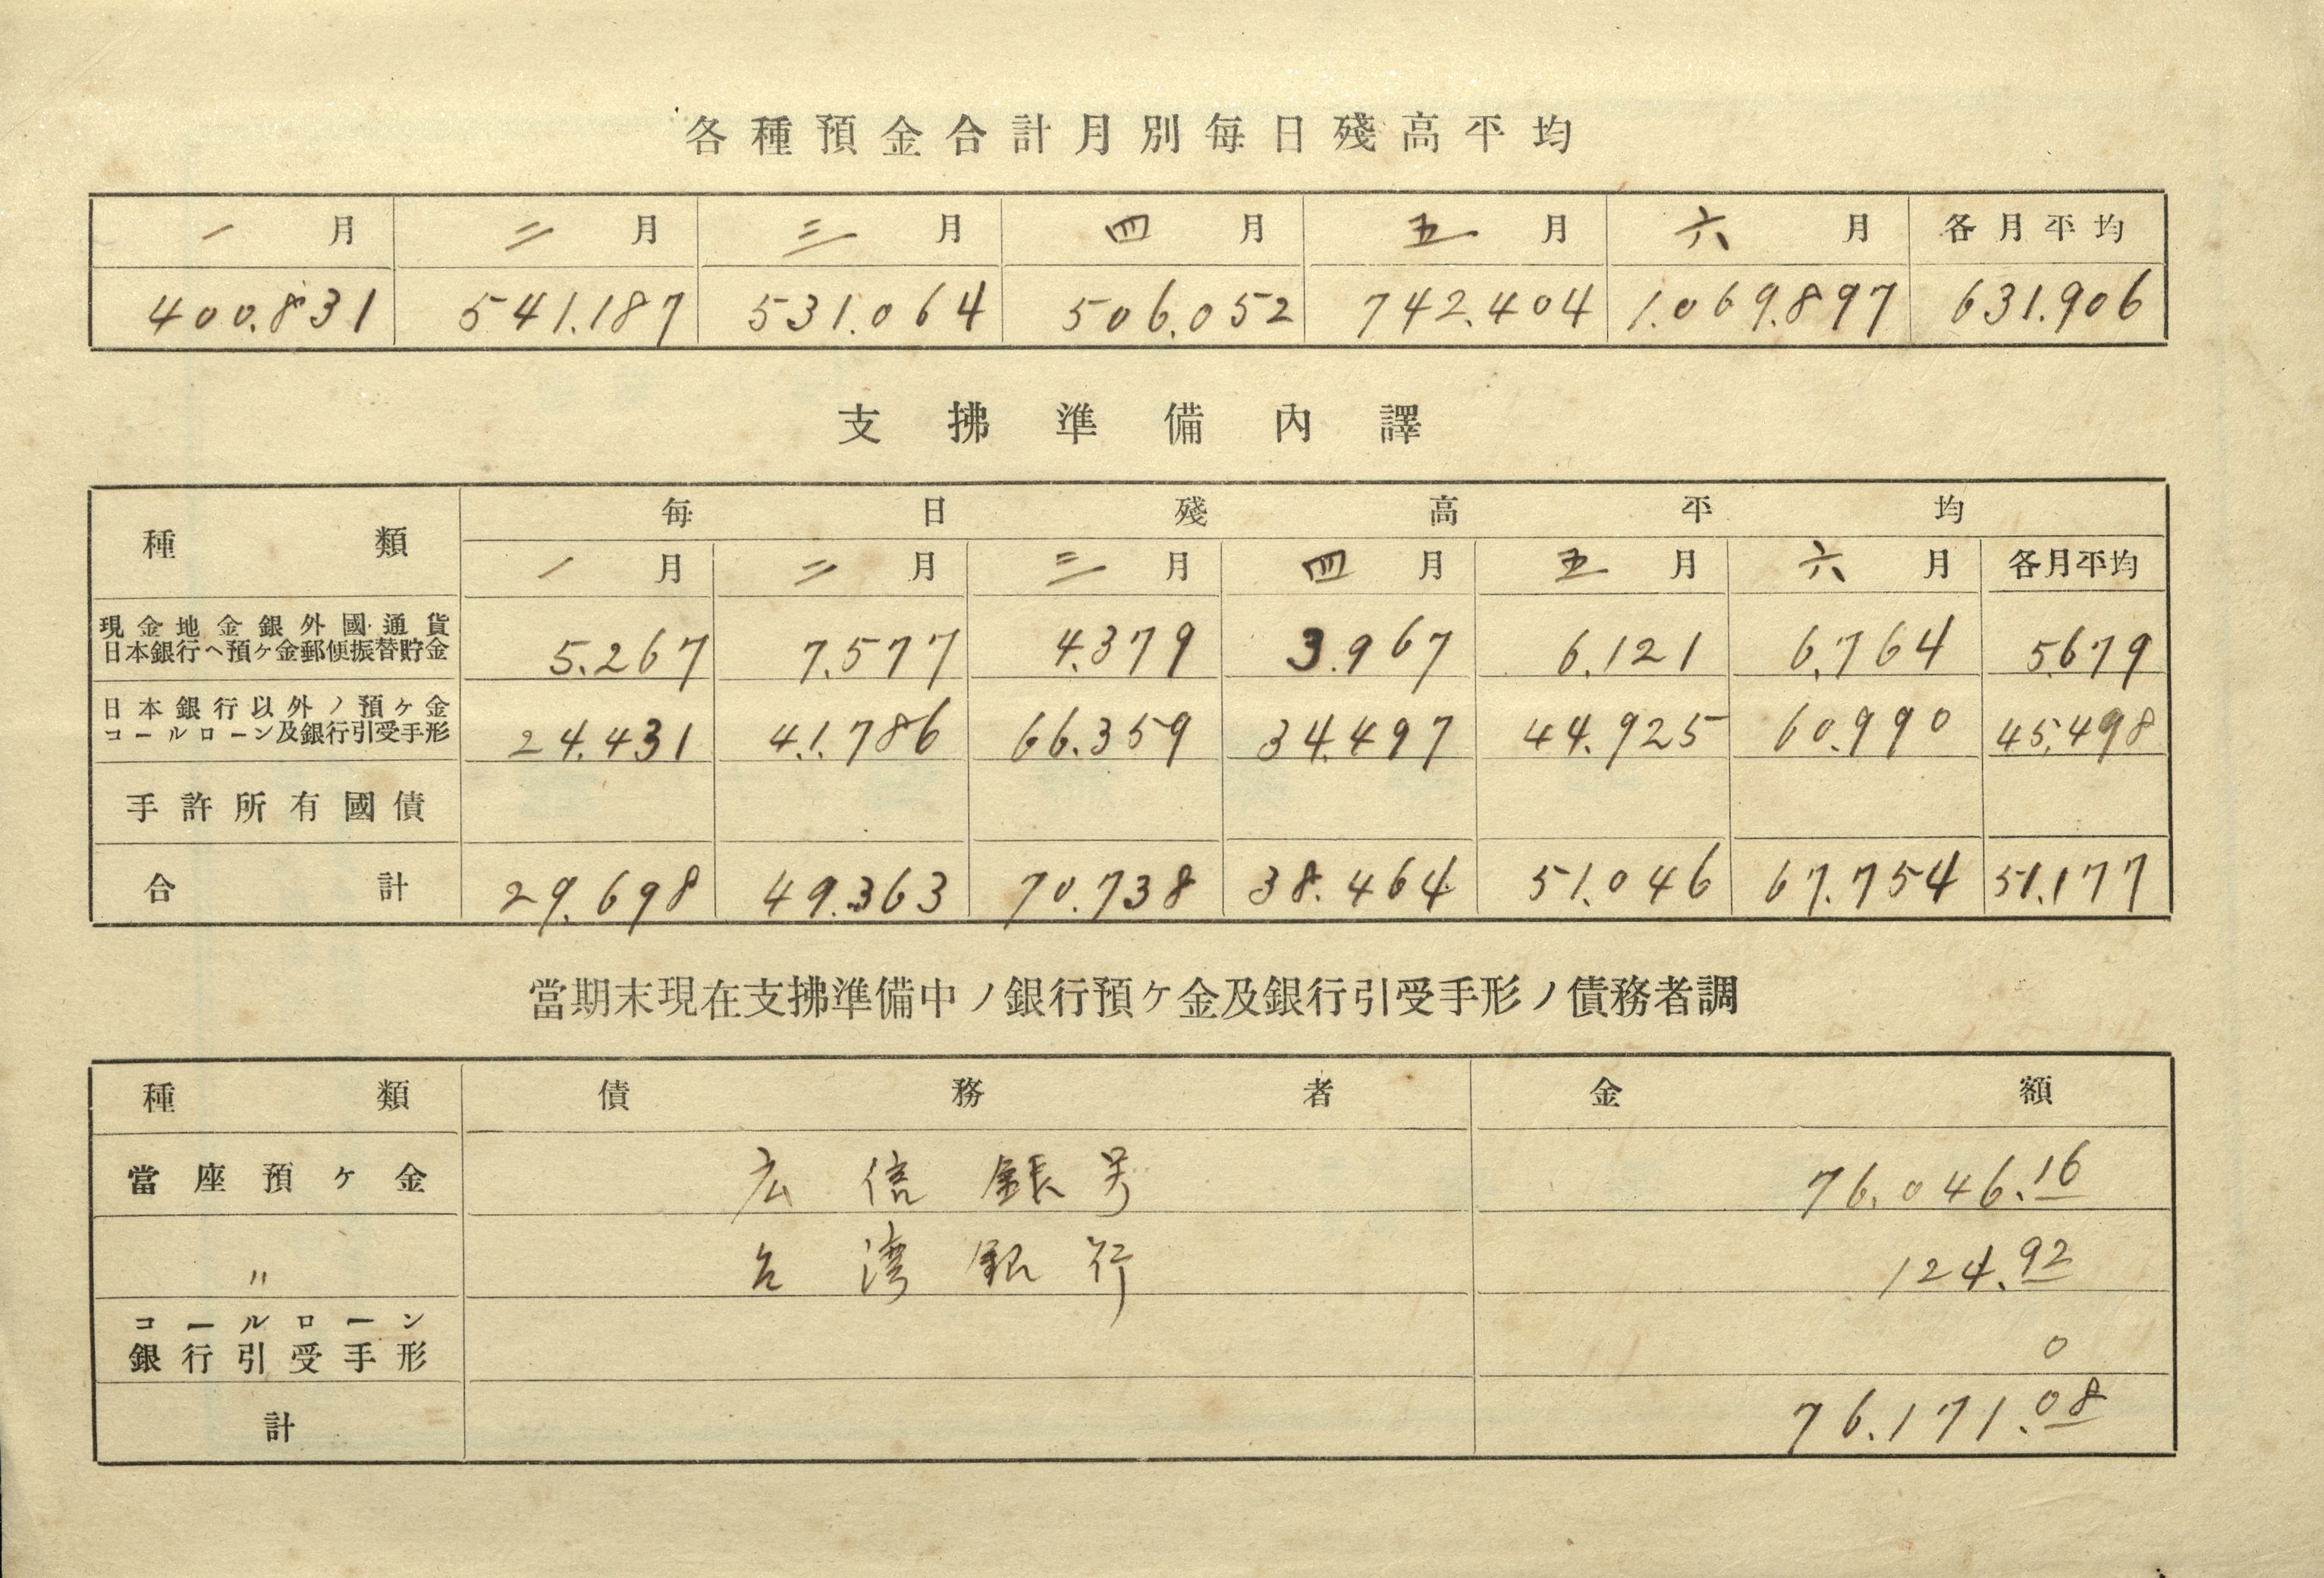 各種預金合計月別每日殘高平均
一月 二月 三月 四月 五月 六月 各月平均
400.831 541.187 531.064 506.052 742.404 1.069.897 631.906
支拂準備內譯
種類 每日殘高平均
一月 二月 三月 四月 五月 六月 各月平均
現金地金銀外國通貨
日本銀行ヘ預ヶ金郵便振替貯金 5.267 7.577 4.379 3.967 6.121 6.764 5679
日本銀行以外ノ預ヶ金
コールローン及銀行引受手形 24.431 41.786 66.359 34.497 44.925 60.990 45,498
手許所有國債
合計 29.698 49.363 70.738 38.464 51.046 67.754 51.177
當期末現在支拂準備中ノ銀行預ヶ金及銀行引受手形ノ債務者調
種類 債務者 金額
當座預ヶ金 広信銀号 76.046.16
〃 台湾銀行 124.92
コールローン
銀行引受手形 0
計 76.171.08